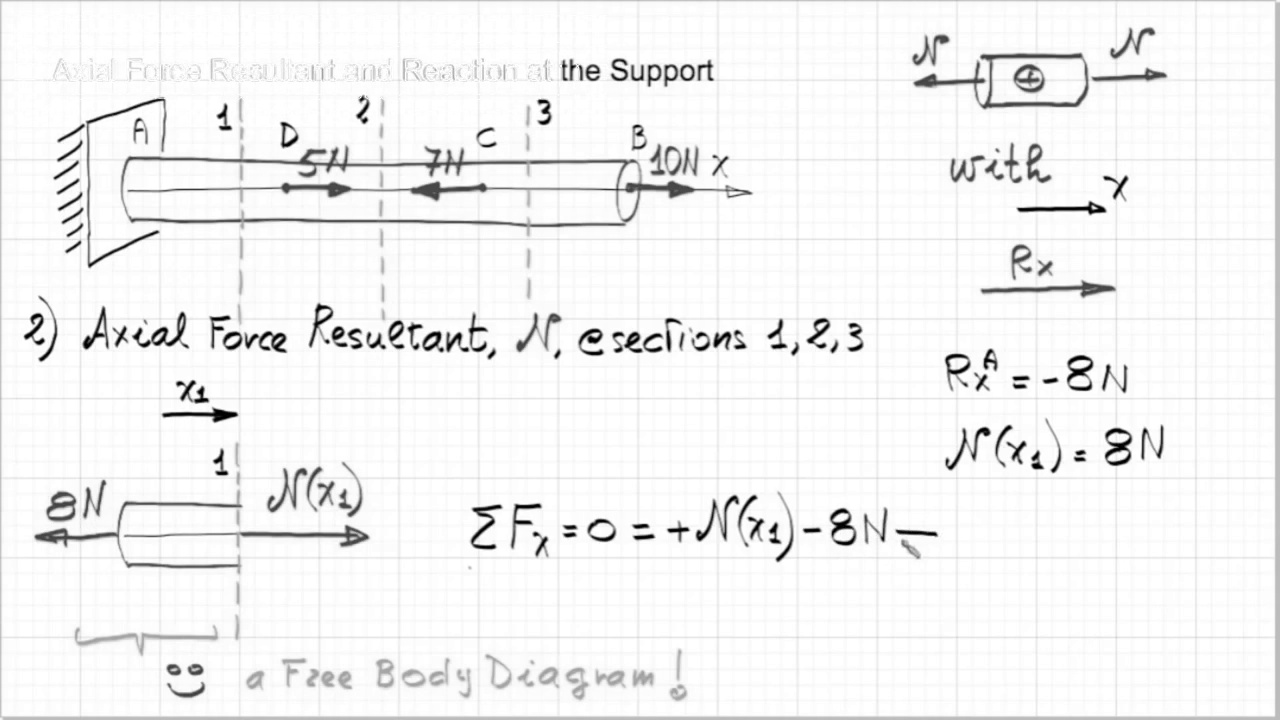 Axial Force Resultant and Reaction at the Support
N N
A 1 D 2 C 3 B
5N 7N 10N x
with
x
Rx
2) Axial Force Resultant, N, @sections 1,2,3
Rx^A = -8N
x1
N(x1) = 8N
1
8N N(x1)
ΣFx = 0 = +N(x1) - 8N
a Free Body Diagram!